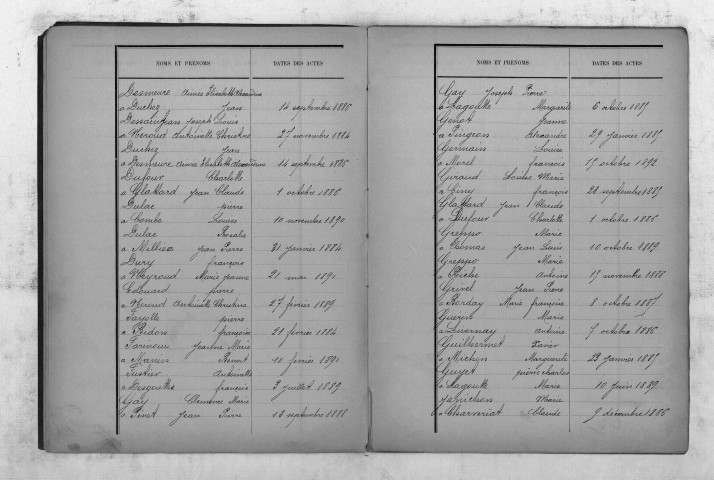 NOMS ET PRÉNOMS DATES DES ACTES
Desmeure
a Duchez Jean 14 septembre 1886
Jean Joseph Louis
a Néroud Antoinette Christine 27 novembre 1884
Duchez Jean
a Desmeure 14 septembre 1886
Dufour Charlotte
a Clattard Jean Claude 1 octobre 1886
Dulac pierre
a Combe Louise 10 novembre 1890
Dulac Rosalie
a Jean Pierre 21 janvier 1884
Dury françois
a Marie Jeanne 21 mai 1891
Edouard pierre
a Antoinette Christine 27 février 1889
Fayolle pierre
a Bidon françoise 21 février 1884
Jeanne Marie
a Benoit février 1891
Antoinette
a Desgoutte françois 3 juillet 1889
Gay Clemence Marie
a Jean Pierre 18 septembre 1888
NOMS ET PRÉNOMS DATES DES ACTES
Gay Joseph Pierre
a Lagoutte Marguerite 6 octobre 1885
Genot Jeanne
a Pingeon 29 janvier 1885
Germain Louise
a Morel françois 15 octobre 1892
Giraud Louise Marie
a françois 28 septembre 1885
Glattard Jean Claude
a Dufour Charlotte 1 octobre 1886
Greppo Marie
a Jean Louis 10 octobre 1889
Greppo Marie
a Antoine 15 novembre 1888
Grivel Jean Pierre
a Berday Marie françoise 8 octobre 1885
Guérin Marie
a Duvernay Antoine 7 octobre 1886
Guillermet Xavier
a Michon Marguerite 23 janvier 1885
Guyot pierre charles
a Lagoutte Marie 10 juin 1889
Marie
a Charvériat Claude 9 décembre 1886